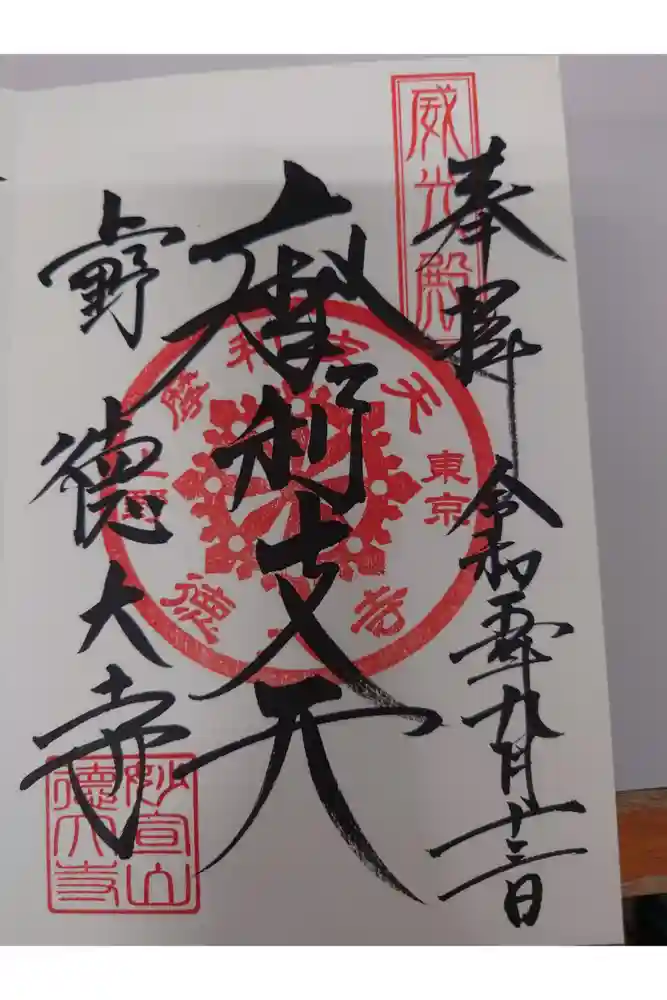 奉拝 令和五年九月日
威光殿
摩利支天
摩利支天
東京
上野
徳大寺
上野 徳大寺
妙宣山
徳大寺